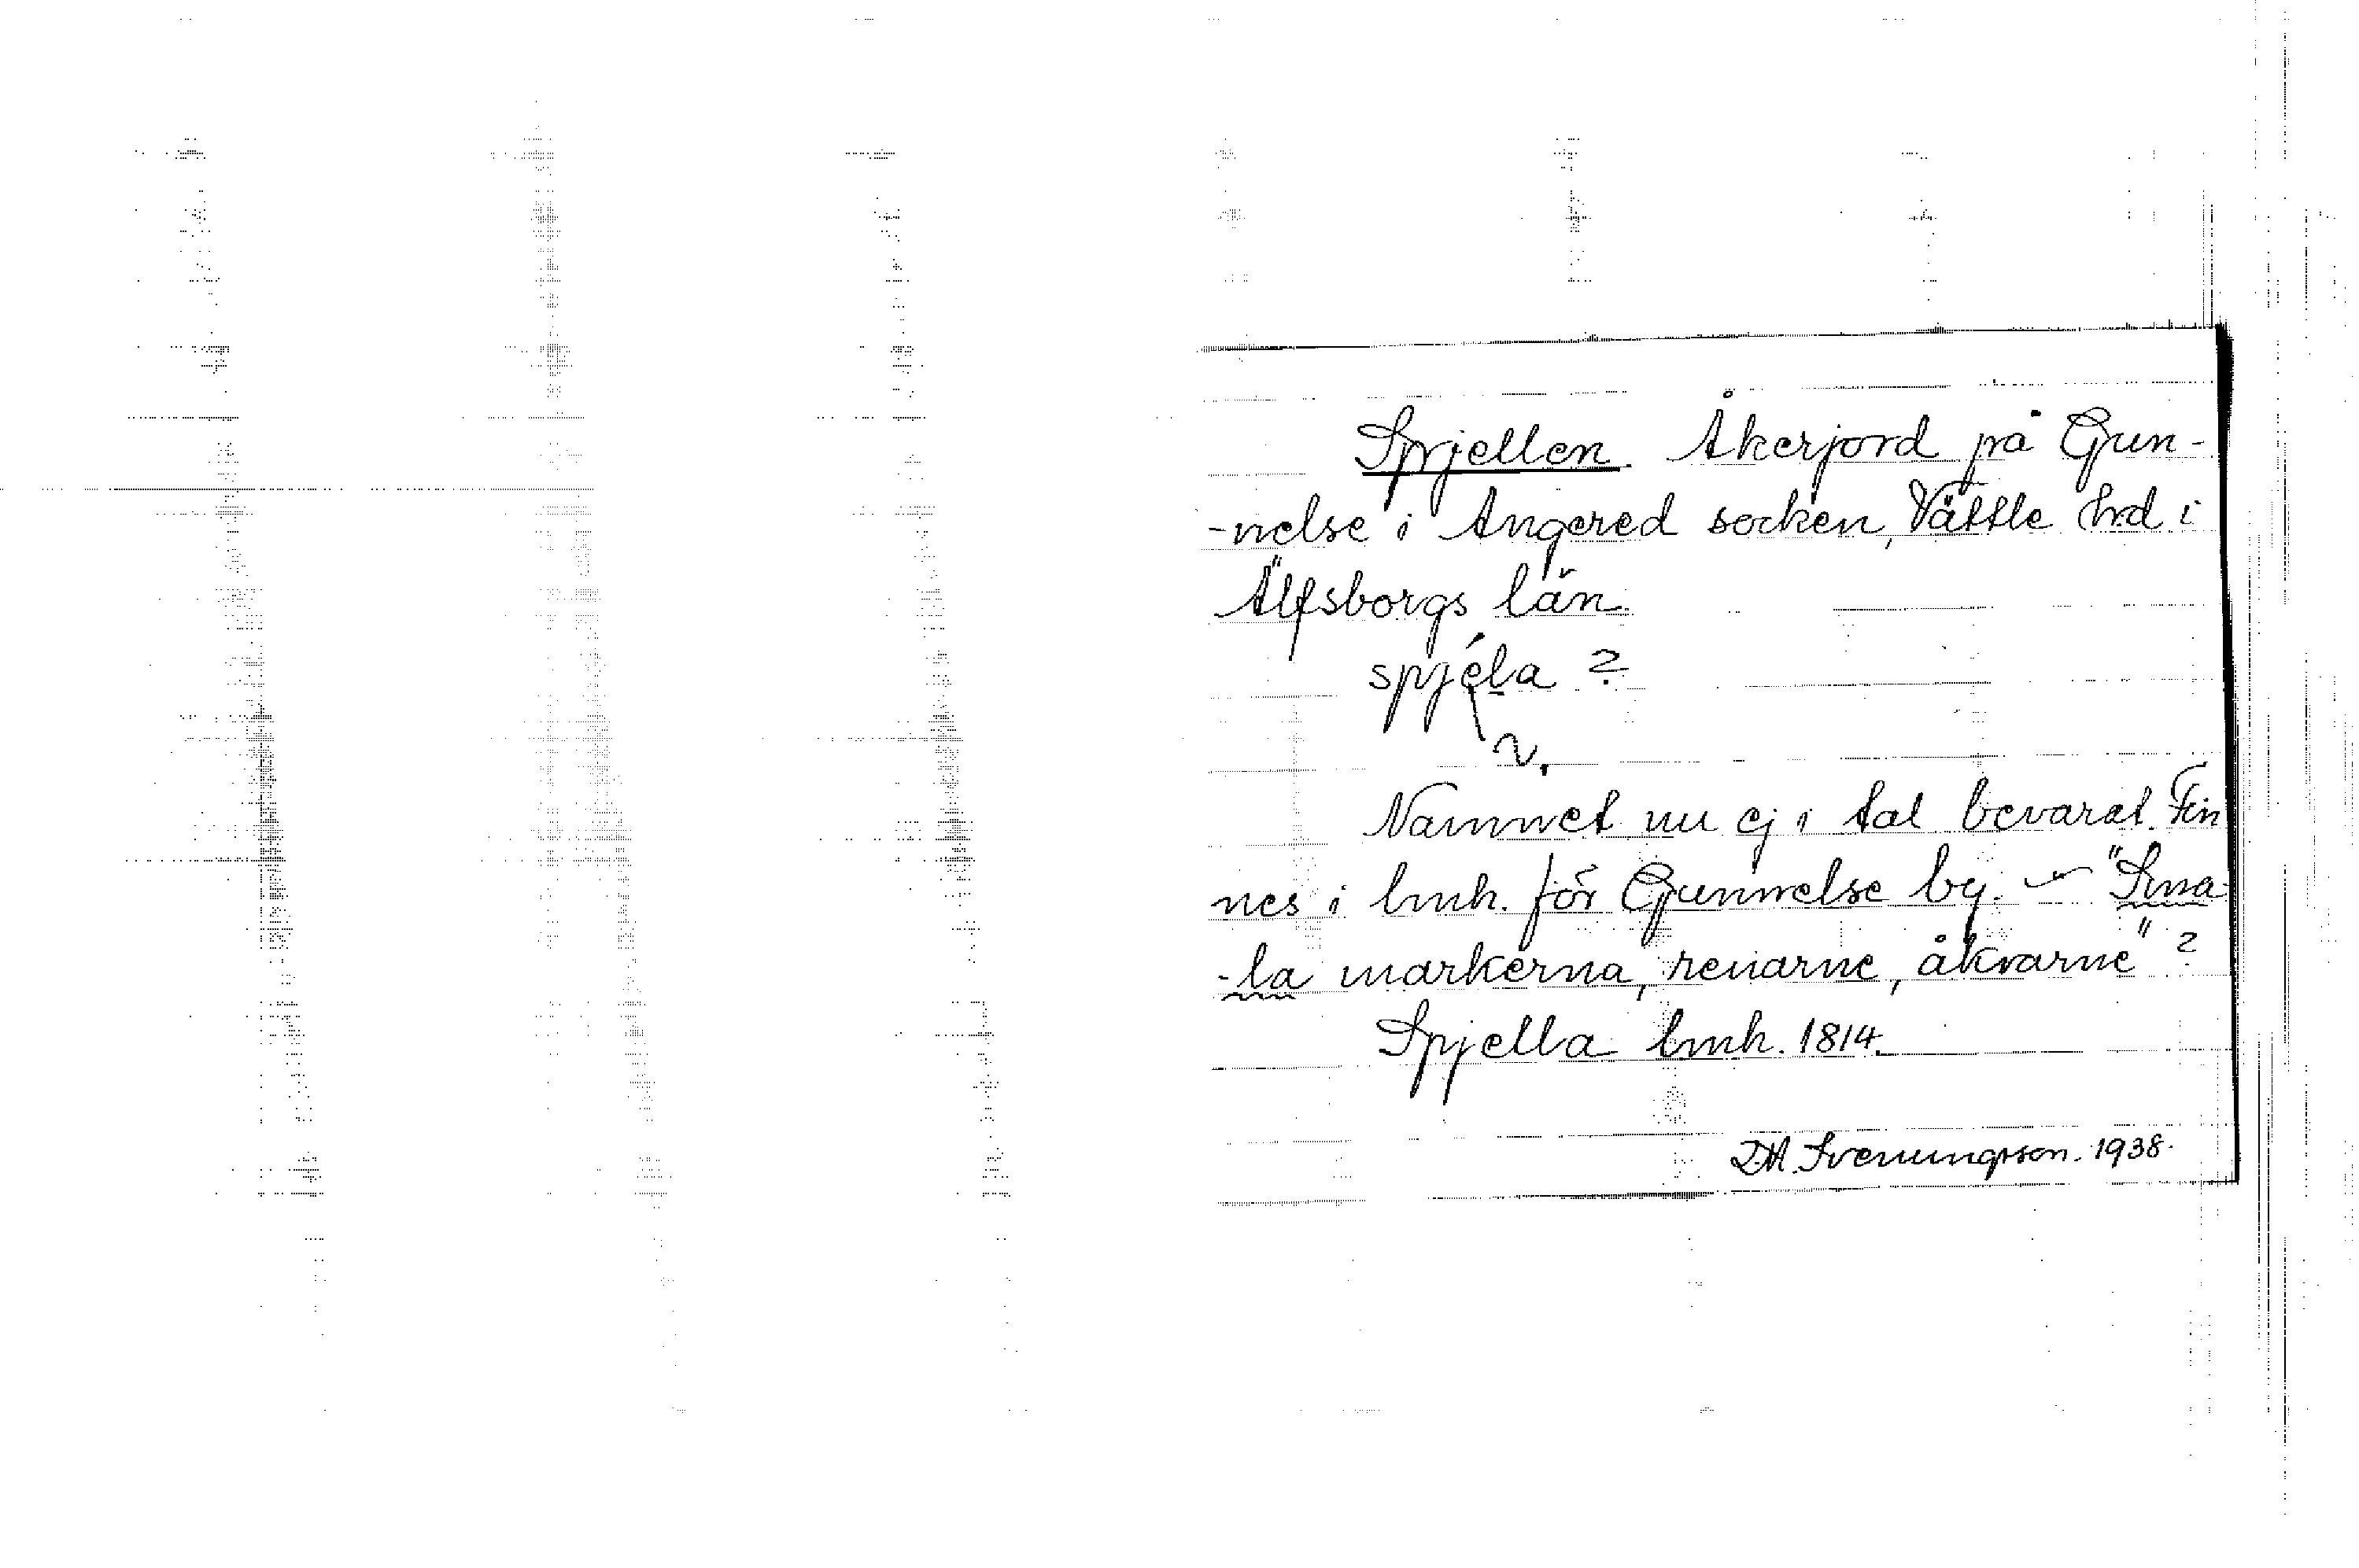 Spjellen. Åkerjord på Gun-
-nelse i Angered socken, Vättle hrd i
Älfsborgs län.
spjéla ?
Namnet nu ej i tal bevarat. Fin
nes i lmh. för Gunnelse by. – "Sma
-la markerna, renarne, åkrarne" ?
Spjella lmh. 1814.
D.A. Svenungsson. 1938.